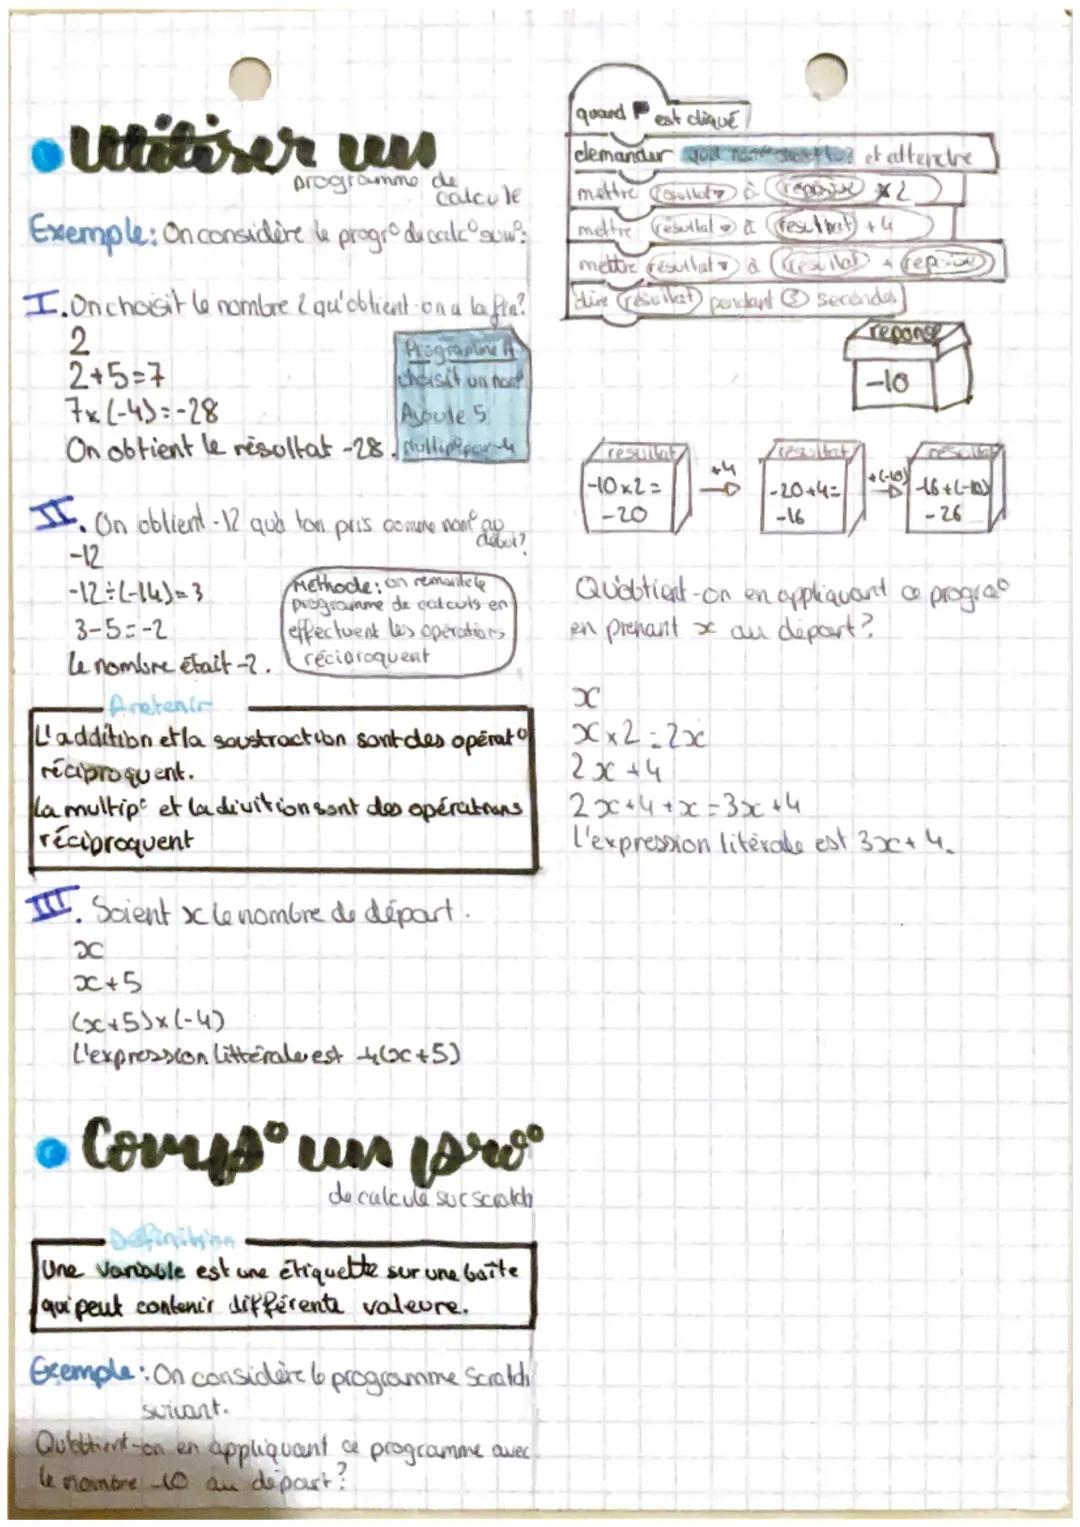 Utiliser un
programme de
calcule
Exemple: On considère le progr° du calc° suiv°:
I. On choisit le nombre 2 qu'obtient-on a la fin?
2
2+5=7
7x(-4)=-28
On obtient le résoltat -28.
Programme A
choisit un nom°
Ajoute 5
Multiplie par -4
II. On obtient -12 qu'à ton pris comme nom° au
début?
-12
-12÷(-14)=3
3-5=-2
Le nombre était -2.
Méthode: on remonte le
programme de calculs en
effectuent les opérations
réciproquent
A retenir
L'addition et la soustraction sont des opérat°
réciproquent.
La multip° et la divition sont des opérations
réciproquent
III. Soient x le nombre de départ.
x
x+5
(x+5)x(-4)
L'expression littérale est -4(x+5)
Comp° un pro°
de calcule sur scratch
Définition
Une variable est une étiquette sur une boîte
qui peut contenir différente valeure.
Exemple: On considère le programme Scratch
suivant.
Qu'obtient-on en appliquant ce programme avec
le nombre -10 au départ?
quand est cliqué
demander et attendre
mettre résultat à réponse x2
mettre résultat à résultat +4
mettre résultat à résultat + réponse
dire résultat pendant 3 secondes
réponse
-10
résultat
-10x2=
-20
+4
résultat
-20+4=
-16
+(-10)
résultat
-16+(-10)
-26
Qu'obtient-on en appliquant ce progra°
en prenant x au départ?
x
x x2=2x
2x+4
2x+4+x=3x+4
L'expression litérale est 3x+4.